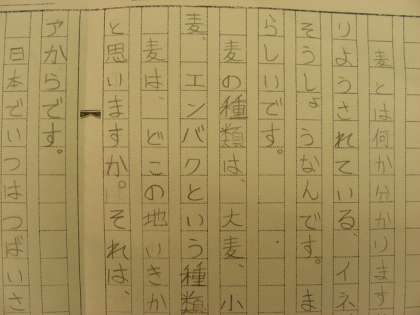 麦とは何か分かります
りようされている、イネ
そうしょうなんです。ま
らしいです。
麦の種類は、大麦、小
麦、エンバクという種類
麦は、どこの地いきか
と思いますか。それは、
アからです。
日本でいつはつばいさ